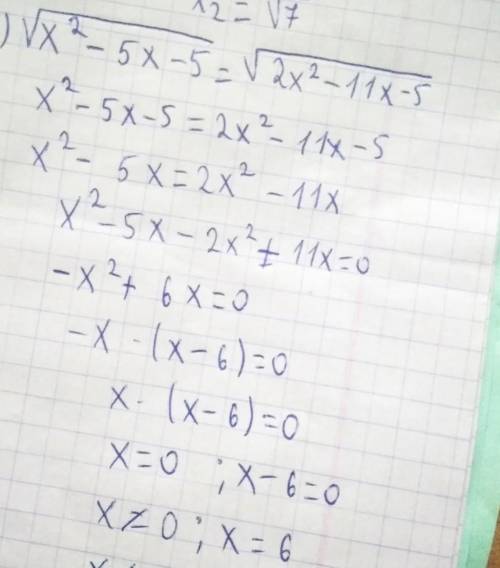 12 = √7
) √x² - 5x - 5 = √2x² - 11x - 5
x² - 5x - 5 = 2x² - 11x - 5
x² - 5x = 2x² - 11x
x² - 5x - 2x² + 11x = 0
-x² + 6x = 0
-x · (x - 6) = 0
x · (x - 6) = 0
x = 0 ; x - 6 = 0
x ≠ 0 ; x = 6